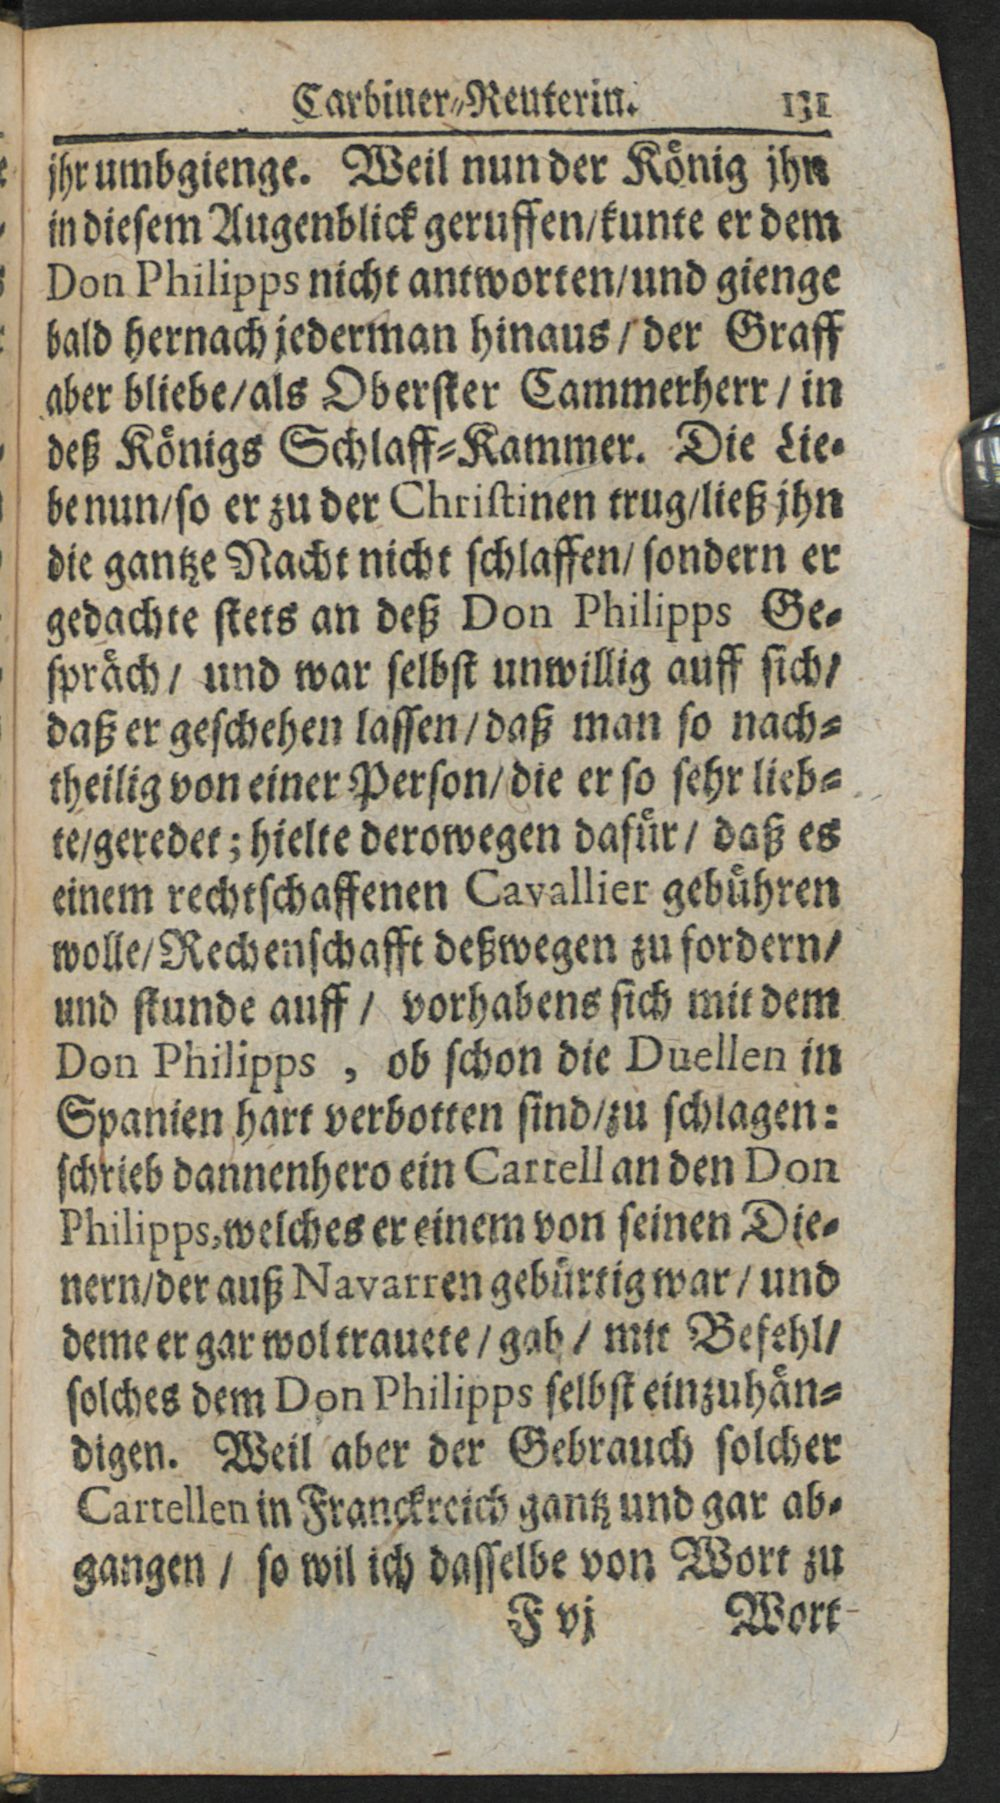 Carbiner-Reuterin. 131
jhr umbgienge. Weil nun der König jhn
in diesem Augenblick geruffen/kunte er dem
Don Philipps nicht antworten/und gienge
bald hernach jederman hinaus / der Graff
aber bliebe/als Oberster Cammerherr / in
deß Königs Schlaff-Kammer. Die Lie-
be nun/so er zu der Christinen trug/ließ jhn
die gantze Nacht nicht schlaffen/ sondern er
gedachte stets an deß Don Philipps Ge-
spräch / und war selbst unwillig auff sich/
daß er geschehen lassen/daß man so nach-
theilig von einer Person/die er so sehr lieb-
te/geredet; hielte derowegen dafür/ daß es
einem rechtschaffenen Cavallier gebühren
wolle/Rechenschafft deßwegen zu fordern/
und stunde auff / vorhabens sich mit dem
Don Philipps , ob schon die Duellen in
Spanien hart verbotten sind/zu schlagen:
schrieb dannenhero ein Cartell an den Don
Philipps, welches er einem von seinen Die-
nern/der auß Navarren gebürtig war / und
deme er gar wol trauete / gab / mit Befehl/
solches dem Don Philipps selbst einzuhän-
digen. Weil aber der Gebrauch solcher
Cartellen in Franckreich gantz und gar ab-
gangen / so wil ich dasselbe von Wort zu
F vj Wort